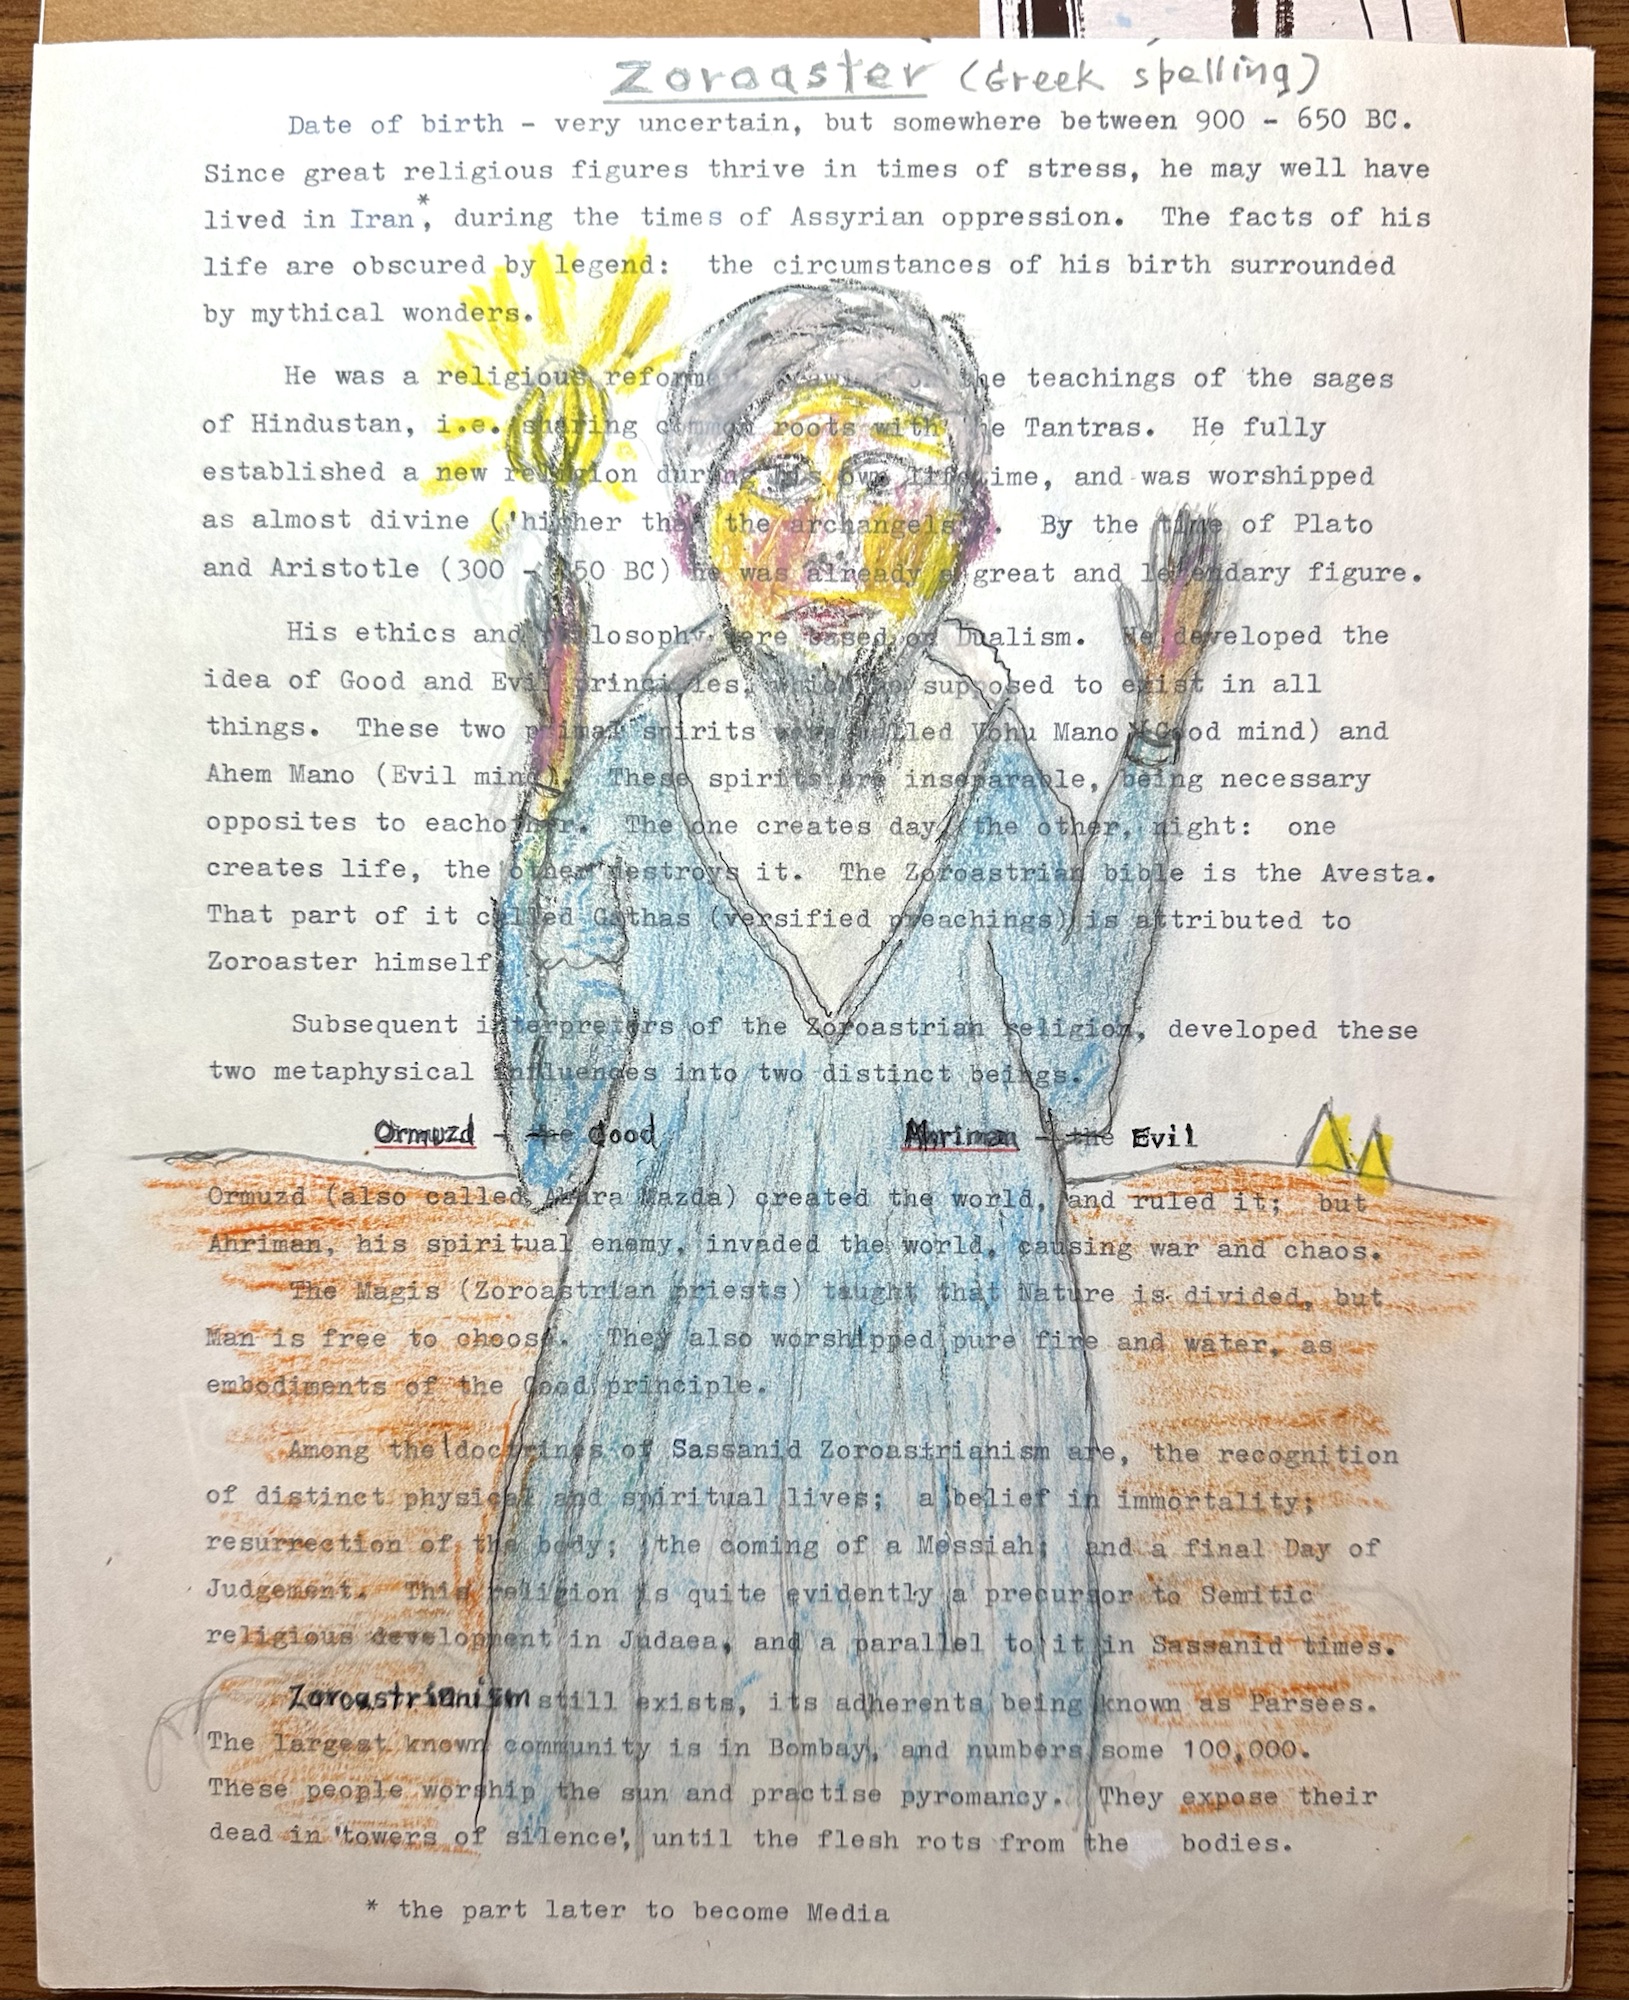 Zoroaster (Greek spelling)
Date of birth - very uncertain, but somewhere between 900 - 650 BC.
Since great religious figures thrive in times of stress, he may well have
lived in Iran*, during the times of Assyrian oppression. The facts of his
life are obscured by legend: the circumstances of his birth surrounded
by mythical wonders.
He was a religious reformer, drawing on the teachings of the sages
of Hindustan, i.e. sharing common roots with the Tantras. He fully
established a new religion during his own lifetime, and was worshipped
as almost divine ('higher than the archangels'). By the time of Plato
and Aristotle (300 - 350 BC) he was already a great and legendary figure.
His ethics and philosophy were based on Dualism. He developed the
idea of Good and Evil principles, which he supposed to exist in all
things. These two primal spirits were called Vohu Mano (Good mind) and
Ahem Mano (Evil mind). These spirits are inseparable, being necessary
opposites to eachother. The one creates day, the other, night: one
creates life, the other destroys it. The Zoroastrian bible is the Avesta.
That part of it called Gathas (versified preachings) is attributed to
Zoroaster himself.
Subsequent interpreters of the Zoroastrian religion, developed these
two metaphysical influences into two distinct beings.
Ormuzd - the Good Ahriman - the Evil
Ormuzd (also called Ahura Mazda) created the world, and ruled it; but
Ahriman, his spiritual enemy, invaded the world, causing war and chaos.
The Magis (Zoroastrian priests) taught that Nature is divided, but
Man is free to choose. They also worshipped pure fire and water, as
embodiments of the Good principle.
Among the doctrines of Sassanid Zoroastrianism are, the recognition
of distinct physical and spiritual lives; a belief in immortality;
resurrection of the body; the coming of a Messiah; and a final Day of
Judgement. This religion is quite evidently a precursor to Semitic
religious development in Judaea, and a parallel to it in Sassanid times.
Zoroastrianism still exists, its adherents being known as Parsees.
The largest known community is in Bombay, and numbers some 100,000.
These people worship the sun and practise pyromancy. They expose their
dead in 'towers of silence', until the flesh rots from the bodies.
* the part later to become Media